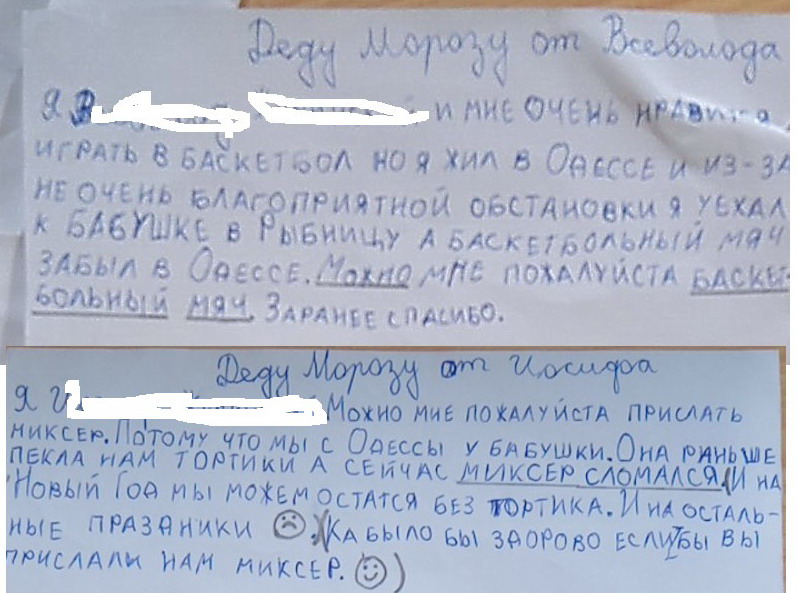 Деду Морозу от Всеволода
Я и мне очень нравится
играть в баскетбол но я жил в Одессе и из-за
не очень благоприятной обстановки я уехал
к бабушке в Рыбницу а баскетбольный мяч
забыл в Одессе. Можно мне пожалуйста баскет-
больный мяч. Заранее спасибо.
Деду Морозу от Иосифа
Я И Можно мне пожалуйста прислать
миксер. Потому что мы с Одессы у бабушки. Она раньше
пекла нам тортики а сейчас миксер сломался. И на
Новый Год мы можем остатся без тортика. И на осталь-
ные празники ☹. Ка было бы здорово если бы вы
прислали нам миксер. ☺)